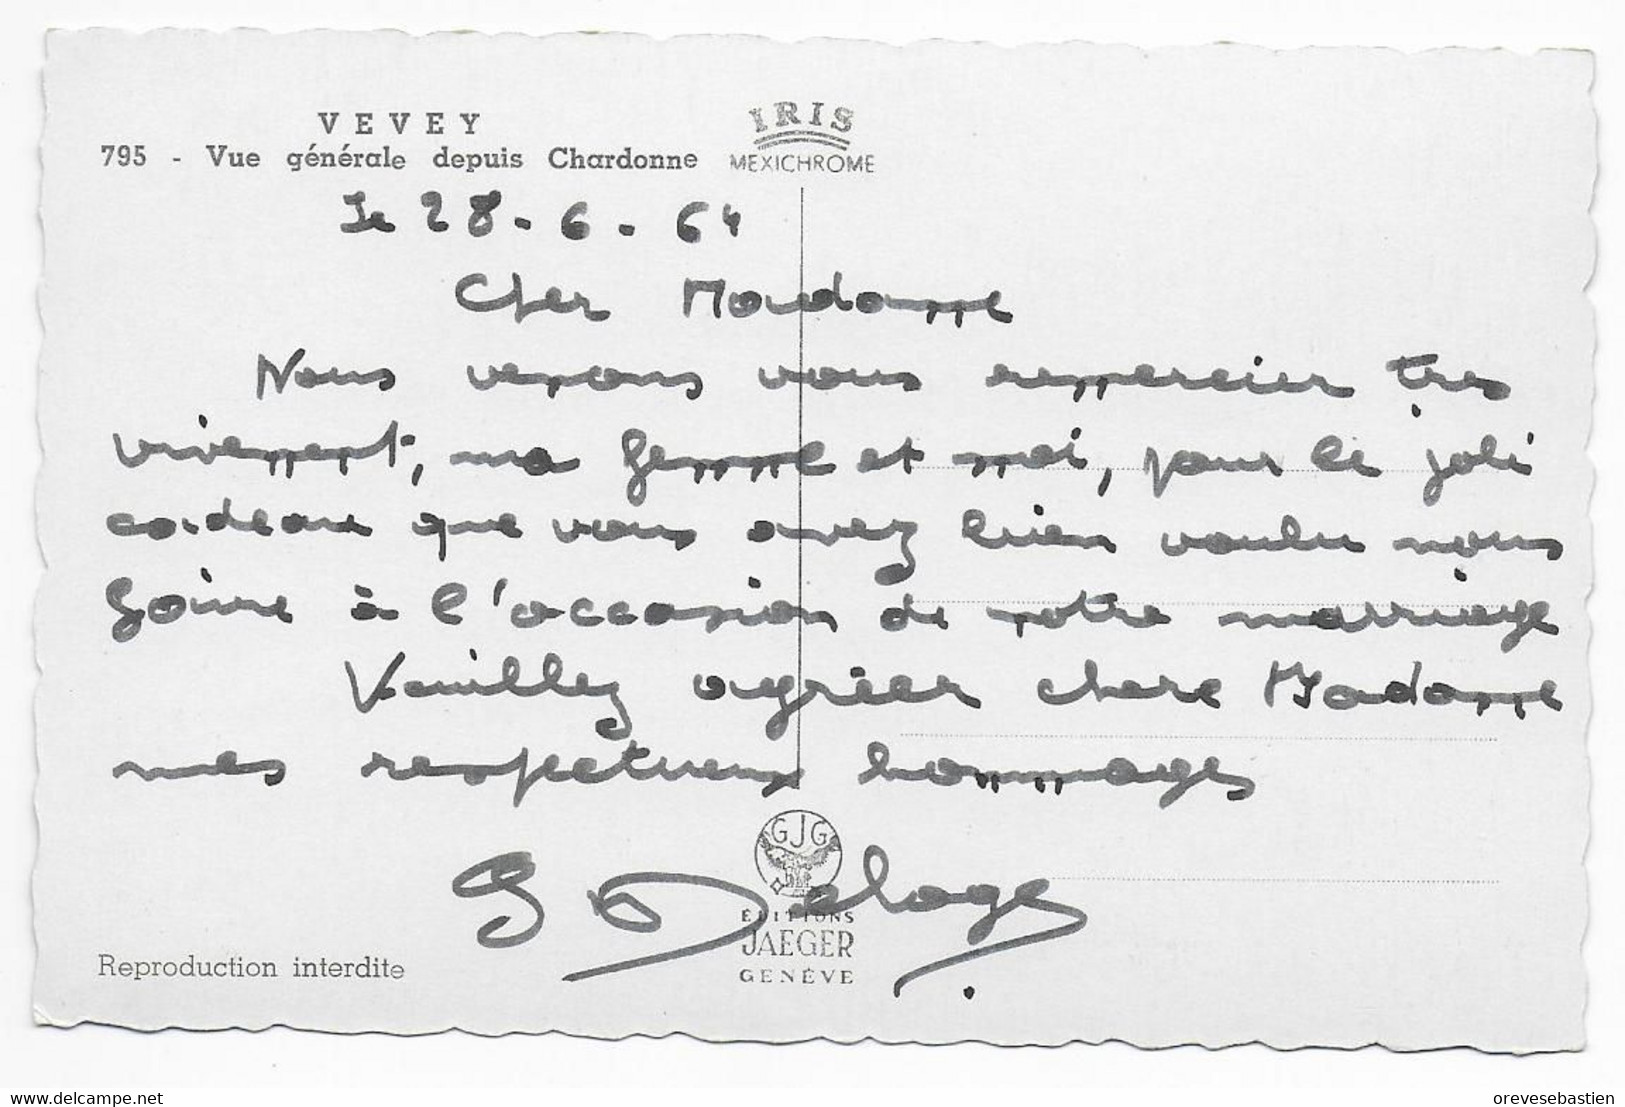 VEVEY
795 - Vue générale depuis Chardonne
IRIS
MEXICHROME
le 28-6-64
Cher Madame
Nous venons vous remercier tres
vivement, ma femme et moi, pour le joli
cadeau que vous avez bien voulu nous
faire à l'occasion de notre marriage
Veuillez agréer chere Madame
mes respectueux hommages
G Deloge
GJG
ÉDITIONS
JAEGER
GENÈVE
Reproduction interdite
delcampe.net
orevesebastien